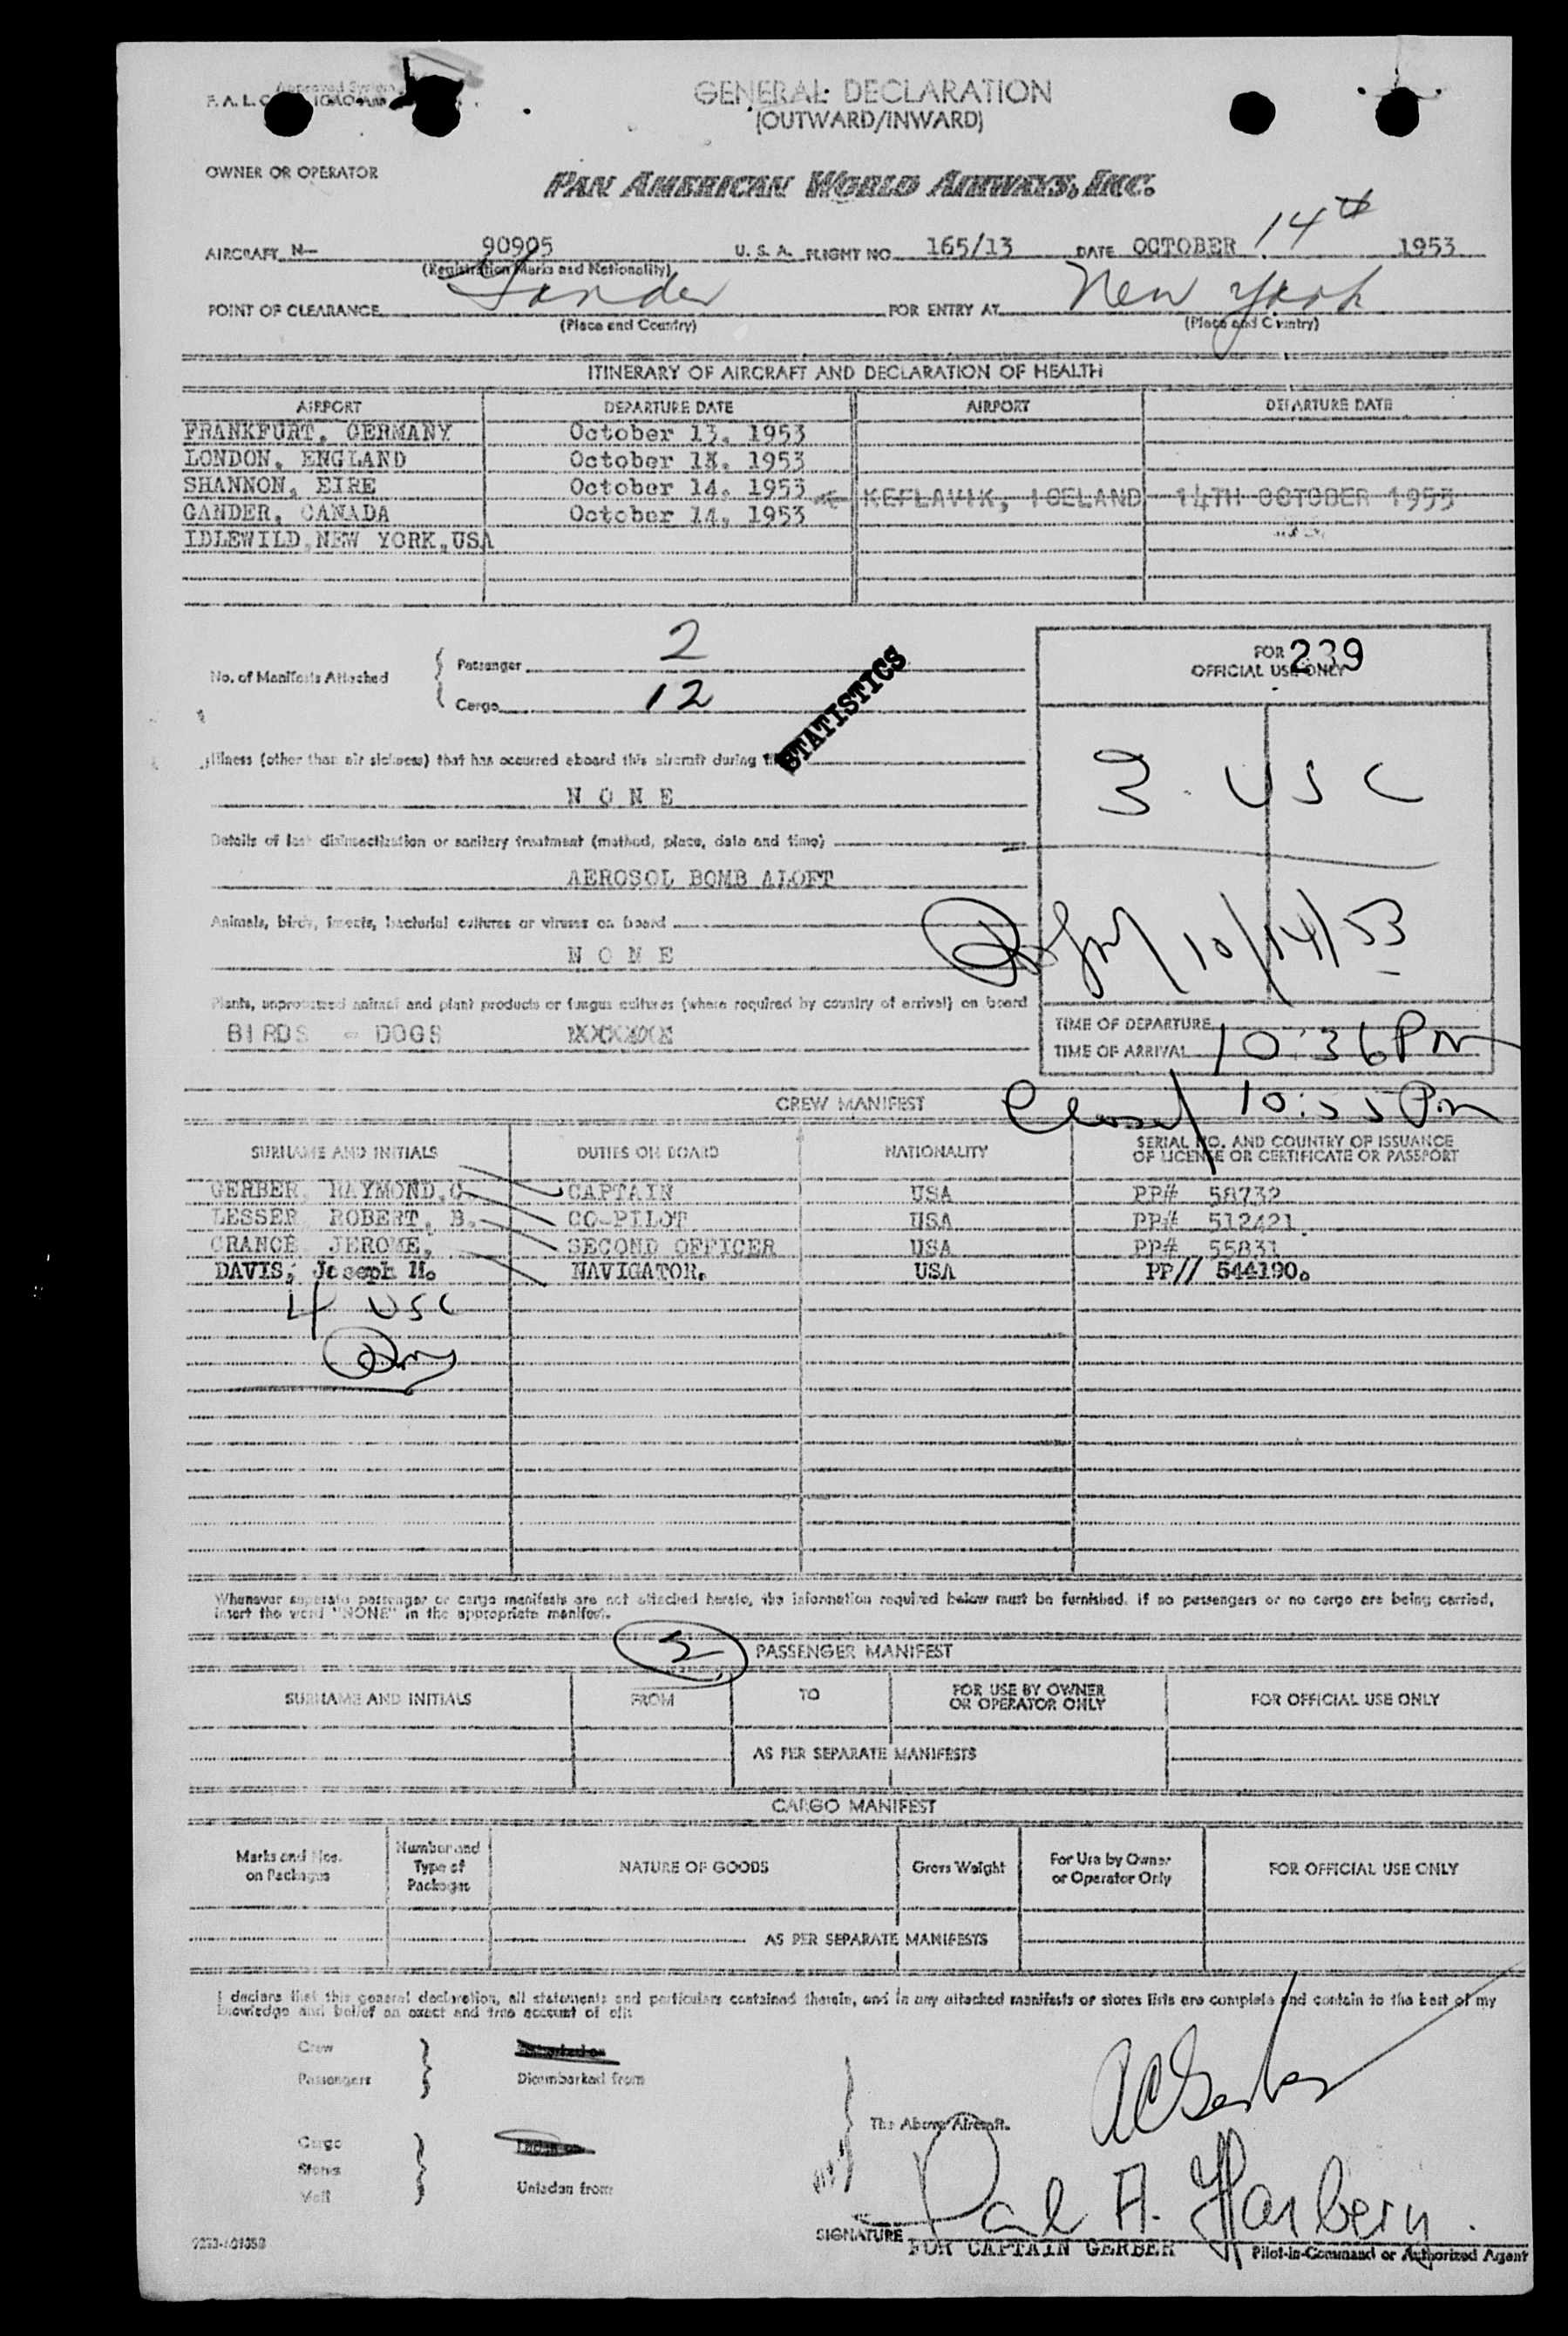 GENERAL DECLARATION
(OUTWARD/INWARD)
OWNER OR OPERATOR
PAN AMERICAN WORLD AIRWAYS, INC.
AIRCRAFT N— 90905 U. S. A. FLIGHT NO. 165/13 DATE OCTOBER 14th 1953
(Registration Marks and Nationality)
POINT OF CLEARANCE Gander FOR ENTRY AT New York
(Place and Country) (Place and Country)
ITINERARY OF AIRCRAFT AND DECLARATION OF HEALTH
AIRPORT DEPARTURE DATE AIRPORT DEPARTURE DATE
FRANKFURT, GERMANY October 13, 1953
LONDON, ENGLAND October 13, 1953
SHANNON, EIRE October 14, 1953 KEFLAVIK, ICELAND 14TH OCTOBER 1953
GANDER, CANADA October 14, 1953
IDLEWILD, NEW YORK, USA
No. of Manifests Attached
Passenger 2
Cargo 12
STATISTICS
FOR OFFICIAL USE ONLY 239
3 USC
10/14/53
Illness (other than air sickness) that has occurred aboard this aircraft during
NONE
Details of last disinsectization or sanitary treatment (method, place, date and time)
AEROSOL BOMB ALOFT
Animals, birds, insects, bacterial cultures or viruses on board
NONE
Plants, unprocessed animal and plant products or fungus cultures (where required by country of arrival) on board
BIRDS - DOGS
TIME OF DEPARTURE
TIME OF ARRIVAL 10:36 PM
Closed 10:55 PM
CREW MANIFEST
SURNAME AND INITIALS DUTIES ON BOARD NATIONALITY SERIAL NO. AND COUNTRY OF ISSUANCE OF LICENSE OR CERTIFICATE OR PASSPORT
GERBER, RAYMOND, C. CAPTAIN USA PP# 58732
LESSER, ROBERT, B. CO-PILOT USA PP# 512421
CRANCE, JEROME, SECOND OFFICER USA PP# 55831
DAVIS, Joseph H. NAVIGATOR. USA PP// 544190.
4 USC
Whenever separate passenger or cargo manifests are not attached hereto, the information required below must be furnished. If no passengers or no cargo are being carried,
insert the word "NONE" in the appropriate manifest.
2 PASSENGER MANIFEST
SURNAME AND INITIALS FROM TO FOR USE BY OWNER OR OPERATOR ONLY FOR OFFICIAL USE ONLY
AS PER SEPARATE MANIFESTS
CARGO MANIFEST
Marks and Nos. on Packages Number and Type of Packages NATURE OF GOODS Gross Weight For Use by Owner or Operator Only FOR OFFICIAL USE ONLY
AS PER SEPARATE MANIFESTS
I declare that this general declaration, all statements and particulars contained therein, and in any attached manifests or stores lists are complete and contain to the best of my
knowledge and belief an exact and true account of all:
Crew
Passengers Disembarked from
Cargo
Stores
Mail Unladen from
The Above Aircraft.
RC Gerber
SIGNATURE Paul A. Harbery
FOR CAPTAIN GERBER Pilot-in-Command or Authorized Agent